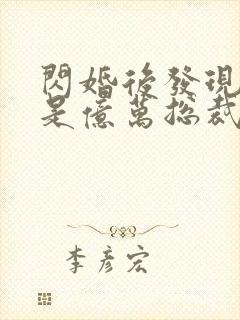 閃婚後發現
是億萬總裁
李彥宏